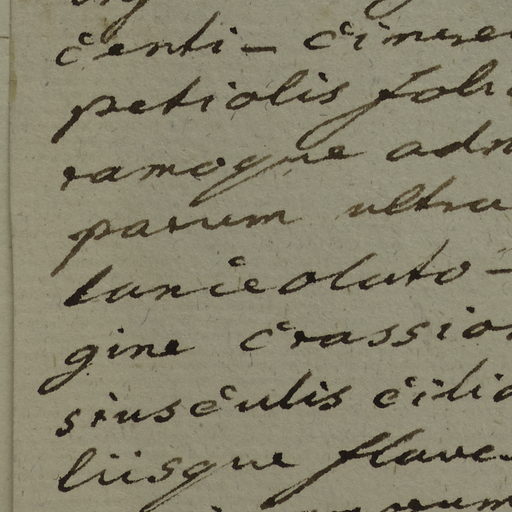 centi- cinere
petiolis foli
ramoque adn
parum ultra
lanceolato-
gine crassio
siusculis cilia
liisque flave